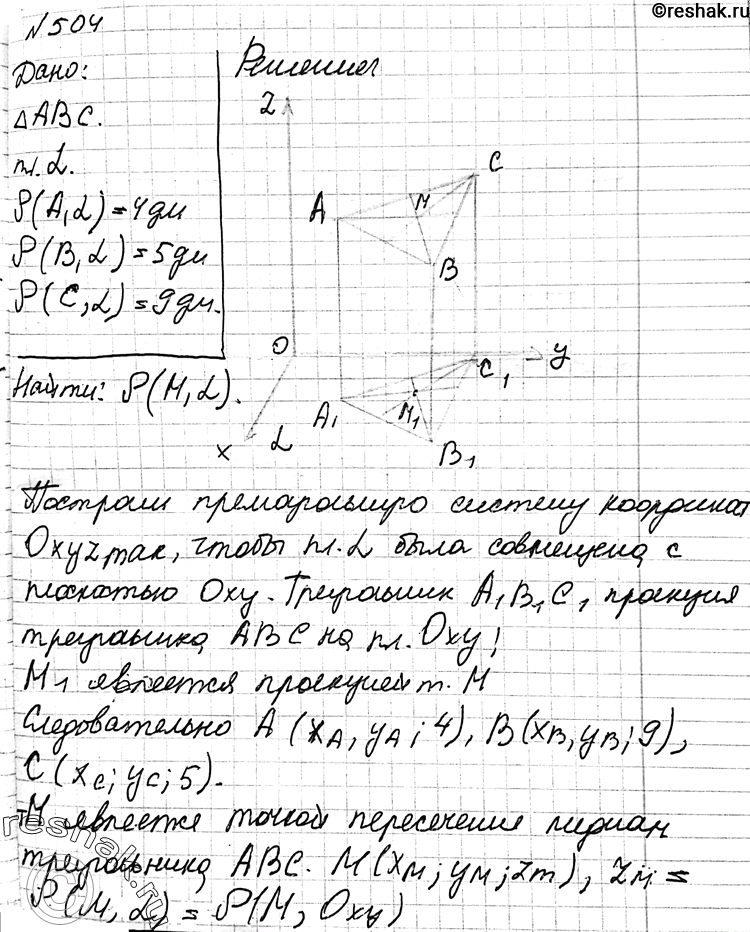 ©reshak.ru
№504
Дано:
△ABC.
пл. α.
ρ(A, α) = 4 дм
ρ(B, α) = 5 дм
ρ(C, α) = 9 дм.
Найти: ρ(M, α).
Решение
Z
C
A
M
B
O
y
C₁
A₁
M₁
x
α
B₁
Построим прямоугольную систему координат
Oxyz так, чтобы пл. α была совмещена с
плоскостью Oxy. Треугольник A₁B₁C₁ проекция
треугольника ABC на пл. Oxy;
M₁ является проекцией т. M
Следовательно A (x_A, y_A; 4), B(x_B, y_B; 9),
C(x_C; y_C; 5).
M является точкой пересечение медиан
треугольника ABC. M(x_M; y_M; z_m), z_M =
ρ(M, α) = ρ(M, Oxy)
reshak.ru